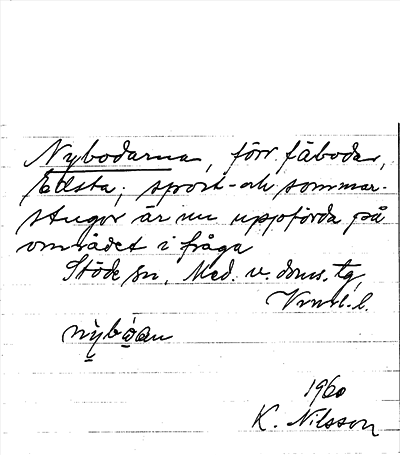 Nybodarna, förr. fäbodar,
Ellsta; sport- och sommar-
stugor är nu uppförda på
området i fråga
Stöde sn, Med. v. doms. tg,
nybo̤an
1960
K. Nilsson